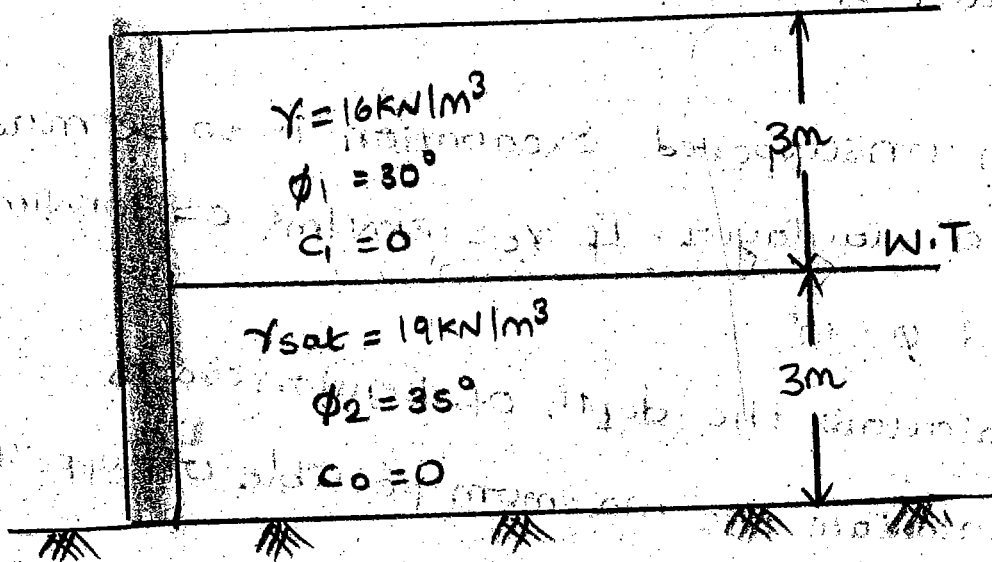 γ = 16 KN/m³
φ₁ = 30°
C₁ = 0
3m
W.T
γsat = 19 KN/m³
φ₂ = 35°
C₀ = 0
3m